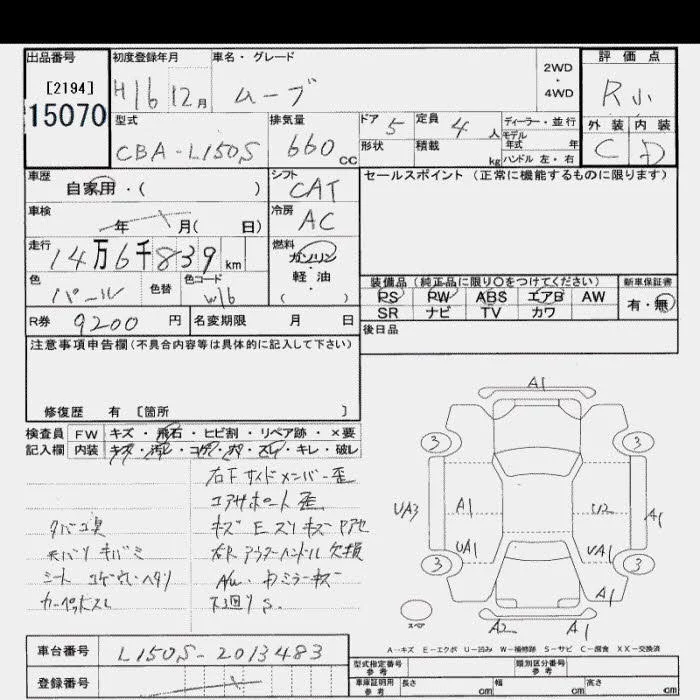 出品番号 初度登録年月 車名・グレード 評価点
[2194] H16 12月 ムーブ 2WD・4WD R小
15070 型式 排気量 ドア 5 定員 4人 ディーラー・並行 外装 内装
CBA-L150S 660cc 形状 積載 kg モデル年式 年 C D
ハンドル 左・右
車歴 自家用・( ) シフト CAT セールスポイント (正常に機能するものに限ります)
車検 年 月( 日) 冷房 AC
走行 14万6千839km 燃料 ガソリン・軽油 ( )
色 パール 色替 色コード W16 装備品 (純正品に限り○をつけてください) 新車保証書
PS PW ABS エアB AW 有・無
SR ナビ TV カワ
R券 9200円 名変期限 月 日 後日品
注意事項申告欄(不具合内容等は具体的に記入して下さい)
修復歴 有 [箇所 ]
検査員 FW キズ・飛石・ヒビ割・リペア跡・×要
記入欄 内装 キズ・汚レ・コゲ・穴・スレ・キレ・破レ
右下サイドメンバー歪
コアサポート歪
タバコ臭
天バリ キバミ
シート
A1
3 3
UA3 A1 U2 A1
UA1 UA1
3 3
A1
スペア A2 A1
A・・キズ E・・エクボ U・・凹み W・・補修跡 S・・サビ C・・腐食 XX・・交換済
車台番号 L150S-2013483
登録番号
型式指定番号 参考 類別区分番号 参考
車庫証明用 参考 長さ cm 幅 cm 高さ cm